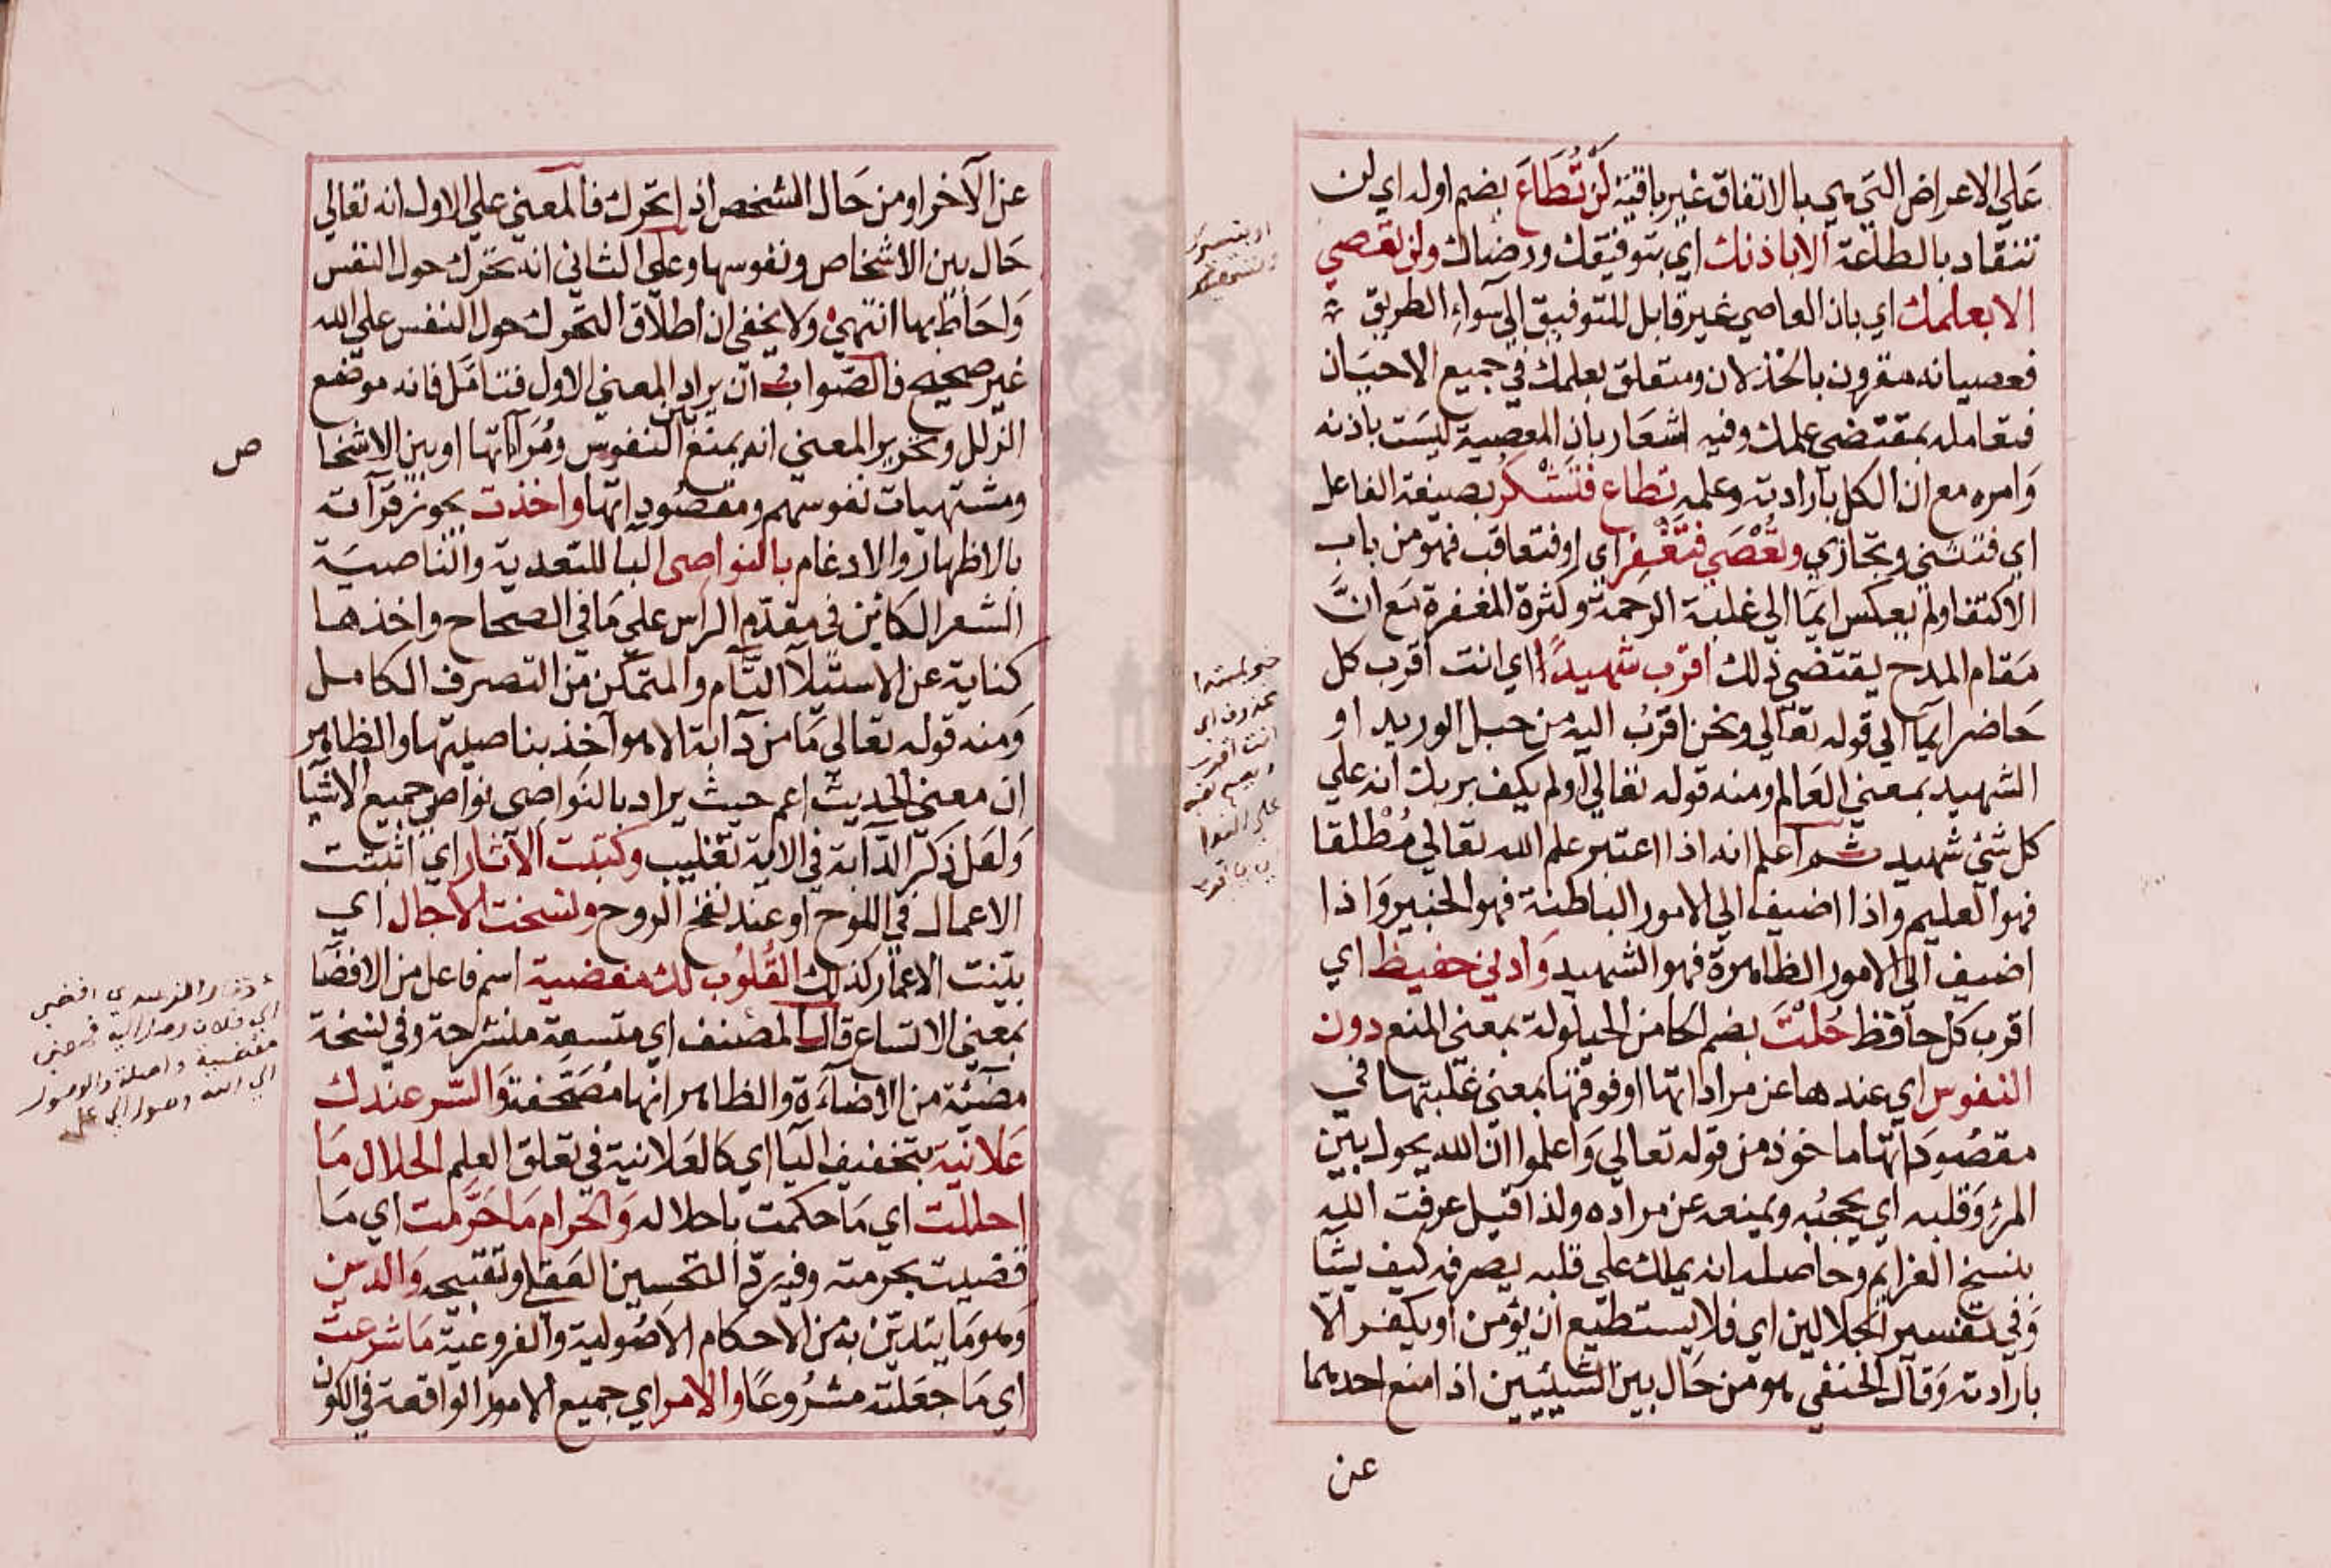 علي الاعراض التي هي بالاتفاق غير باقية لن تُطَاعَ بضم اوله اي لن
تنقاد بالطاعة الا باذنك اي بتوفيقك ورضاك ولن تعصي
الا بعلمك اي بان العاصي غير قابل للتوفيق الي سواء الطريق
فعصيانه مقرون بالخذلان ومتعلق بعلمك في جميع الاحيان
فتعامله بمقتضي علمك وفيه اشعار بان المعصية ليست باذنه
وامره مع ان الكل بارادته وعلمه تطاع فتشكر بصيغة الفاعل
اي فتثني وتجازي وتُعْصَي فتَغْفِر اي او فتعاقب فهو من باب
الاكتفا ولم يعكس ايما الي غلبة الرحمة وكثرة المغفرة مع انَّ
مقام المدح يقتضي ذلك اقرب شهيدًا اي انت اقرب كل
حاضر ايما الي قوله تعالي ونحن اقرب اليه من حبل الوريد او
الشهيد بمعني العالم ومنه قوله تعالي اولم يكف بربك انه علي
كل شئ شهيد ثم اعلم انه اذا اعتبر علم الله تعالي مُطْلقا
فهو العليم واذا اضيف الي الامور الباطنة فهو الخبير واذا
اضيف الي الامور الظاهرة فهو الشهيد وادني حفيظ اي
اقرب كل حافظ حُلْتَ بضم الحا من الحيلولة بمعني المنع دون
النفوس اي عندها عن مراداتها او فوقها بمعني غلبتها في
مقصوداتها ماخوذ من قوله تعالي واعلموا ان الله يحول بين
المرء وقلبه اي يحجبه ويمنعه عن مراده ولذا قيل عرفت الله
بنسخ العزايم وحاصله انه يملك علي قلبه يصرفه كيف يشا
وفي تفسير الجلالين اي فلا يستطيع ان يؤمن او يكفر الا
بارادته وقال الحنفي هو من حال بين الشيئين اذا منع احدهما
عن
انت اقرب
عن الآخر او من حال الشخص اذا تحرك فالمعني علي الاول انه تعالي
حال بين الاشخاص ونفوسها وعلي الثاني انه تحرك حول النفس
واحاط بها انتهي ولا يخفي ان اطلاق التحرك حول النفس علي الله
غير صحيح فالصواب ان يراد المعني الاول فتامل فانه موضع
الزلل وتحرير المعني انه يمنع بين النفوس ومُراداتها او بين الاشخا
ص
ومشتهيات نفوسهم ومقصوداتها واخذت يجوز قرآته
بالاظهار والادغام بالنواصي البا للتعدية والناصية
الشعر الكائن في مقدم الراس علي ما في الصحاح واخذها
كناية عن الاستيلا التام والتمكن من التصرف الكامل
ومنه قوله تعالي ما من دآبة الا هو آخذ بناصيتها والظاهر
ان معني الحديث اعم حيث يراد بالنواصي نواصي جميع الاشيا
ولعل ذكر الدآبة في الاية تغليب وكتبت الآثار اي اثبتت
الاعمال في اللوح او عند نفخ الروح ونسخت الاجال اي
بيّنت الاعمار كذلك القُلُوب لك مفضية اسم فاعل من الافضا
بمعني الاتساع قال المصنف اي متسعة منشرحة وفي نسخة
مضيئة من الاضآءة والظاهر انها مُصَحَّفة والسّر عندك
علانية بتخفيف اليا اي كالعلانية في تعلق العلم الحلال ما
احللت اي ما حكمت باحلاله والحرام ما حَرَّمت اي ما
قضيت بحرمته وفيه ردّ التحسين العقلي وتقبيحه والدين
وهو ما يتديّن به من الاحكام الاصُولية والفروعية ما شرعت
اي ما جعلته مشرُوعًا والامر اي جميع الامور الواقعة في الكون
افضي
الي فلان وصل اليه فمعني
مفضية واصلة والوصول
الي الله